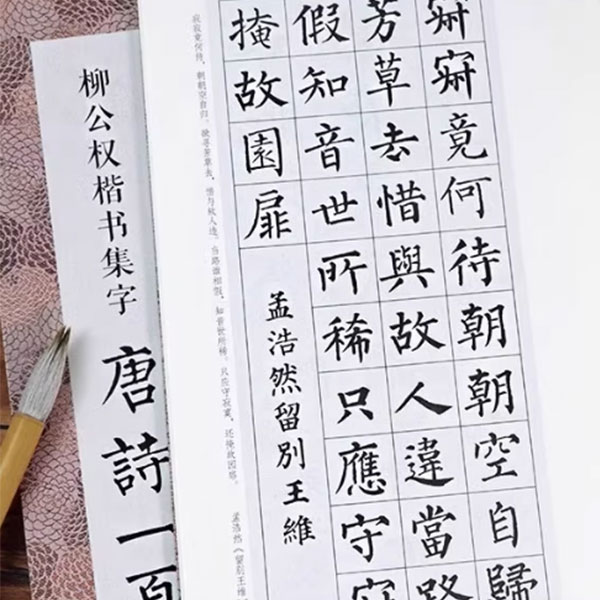 柳公权楷书集字
唐詩一百
寂寂竟何待朝朝空自歸
芳草去惜與故人違當路
假知音世所稀只應守寂
掩故園扉
孟浩然留別王維
寂寂竟何待，朝朝空自归。欲寻芳草去，惜与故人违。当路谁相假，知音世所稀。只应守寂寞，还掩故园扉。
孟浩然《留别王维